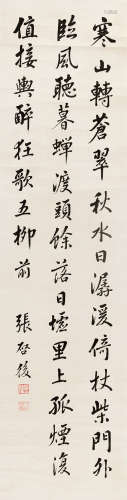 寒山轉蒼翠秋水日潺湲倚杖柴門外
臨風聽暮蟬渡頭餘落日墟里上孤煙復
值接輿醉狂歌五柳前 張啓後